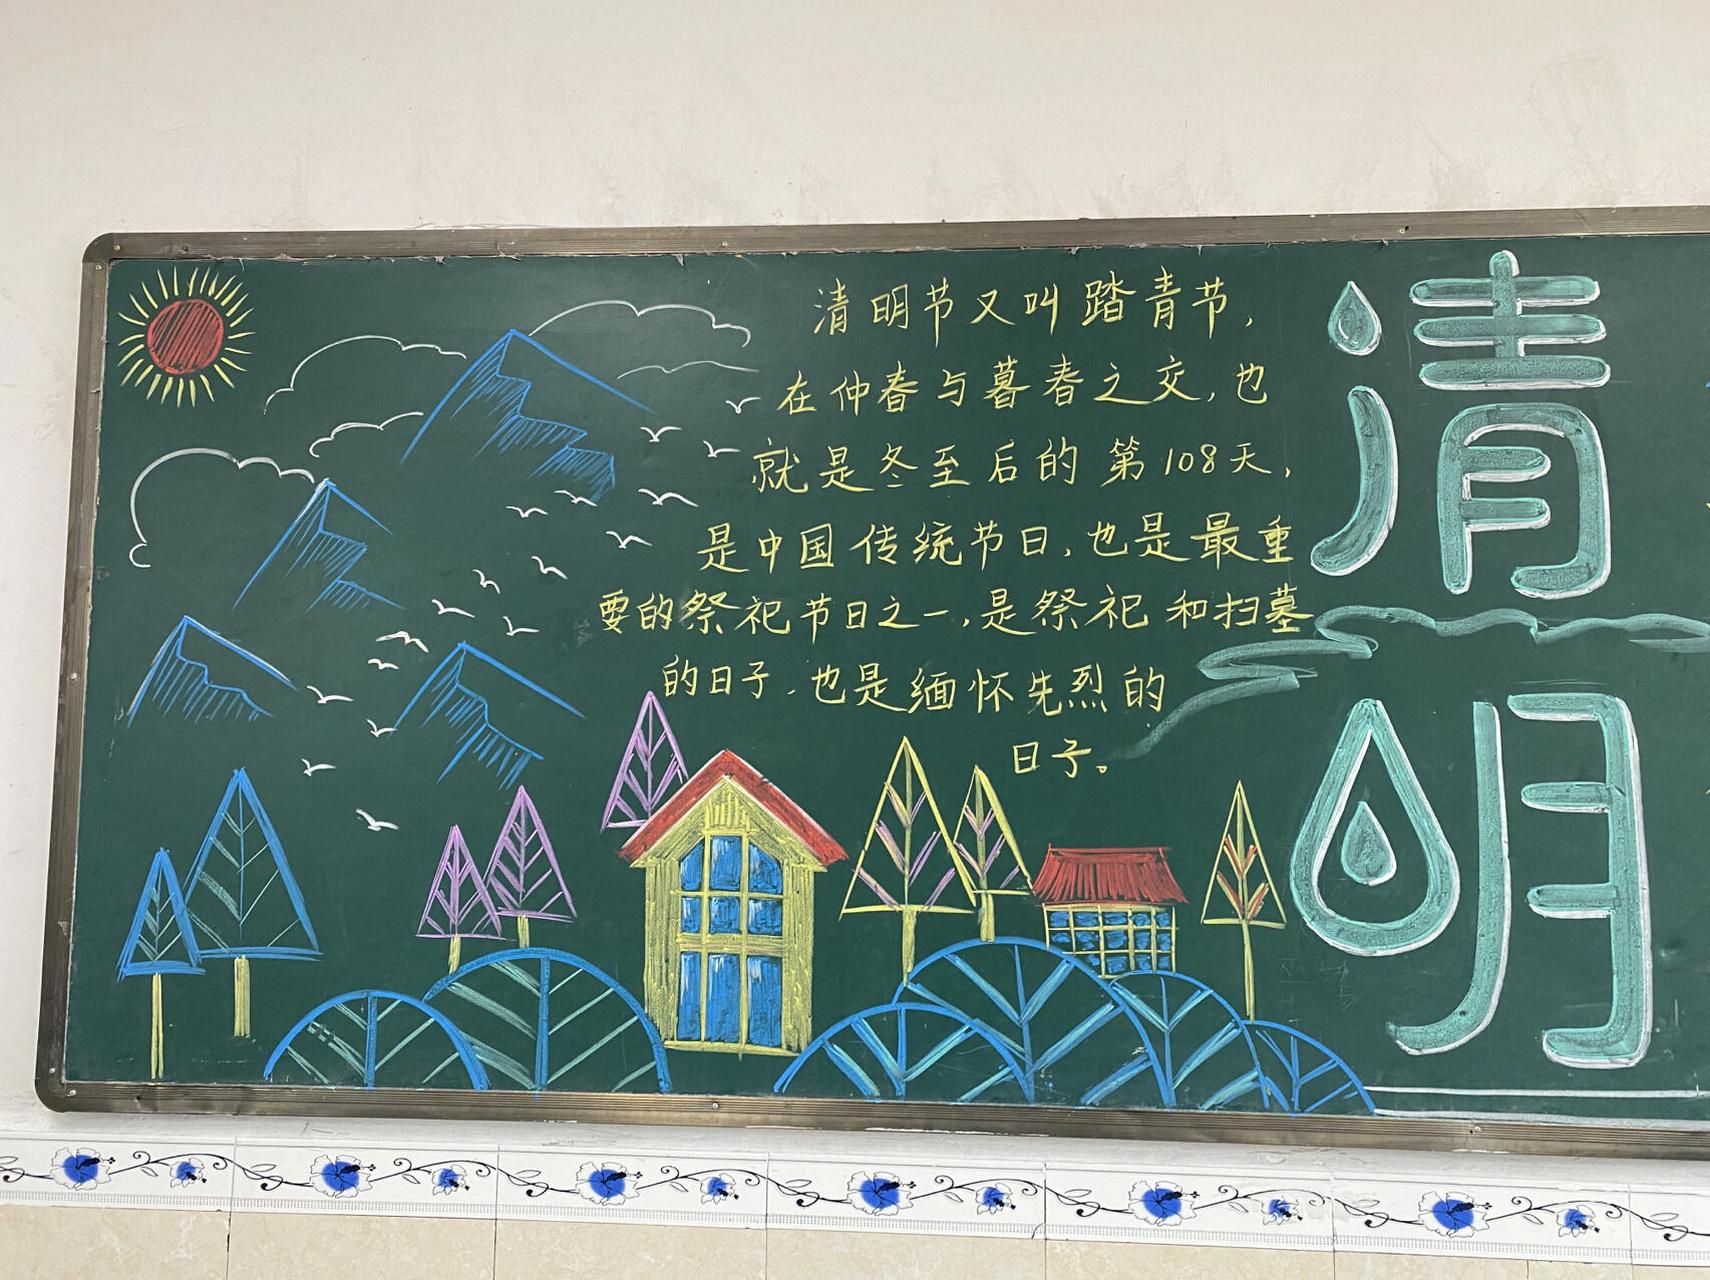 清明节又叫踏青节,
在仲春与暮春之交,也
就是冬至后的第108天,
是中国传统节日,也是最重
要的祭祀节日之一,是祭祀和扫墓
的日子,也是缅怀先烈的
日子。
清
明